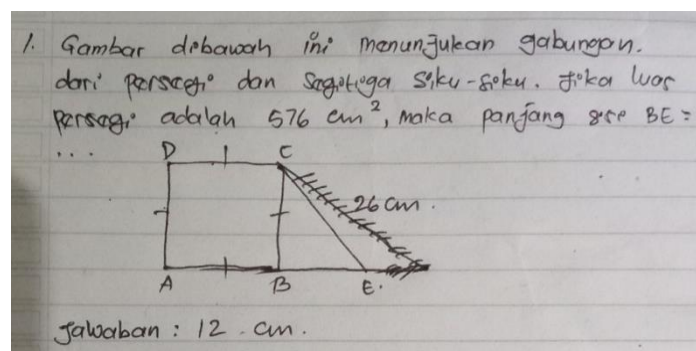 1. Gambar dibawah ini menunjukan gabungan.
dari persegi dan segitiga siku-siku. Jika luas
persegi adalah 576 cm², maka panjang sisi BE =
...
D C
26 cm.
A B E.
Jawaban : 12 cm.